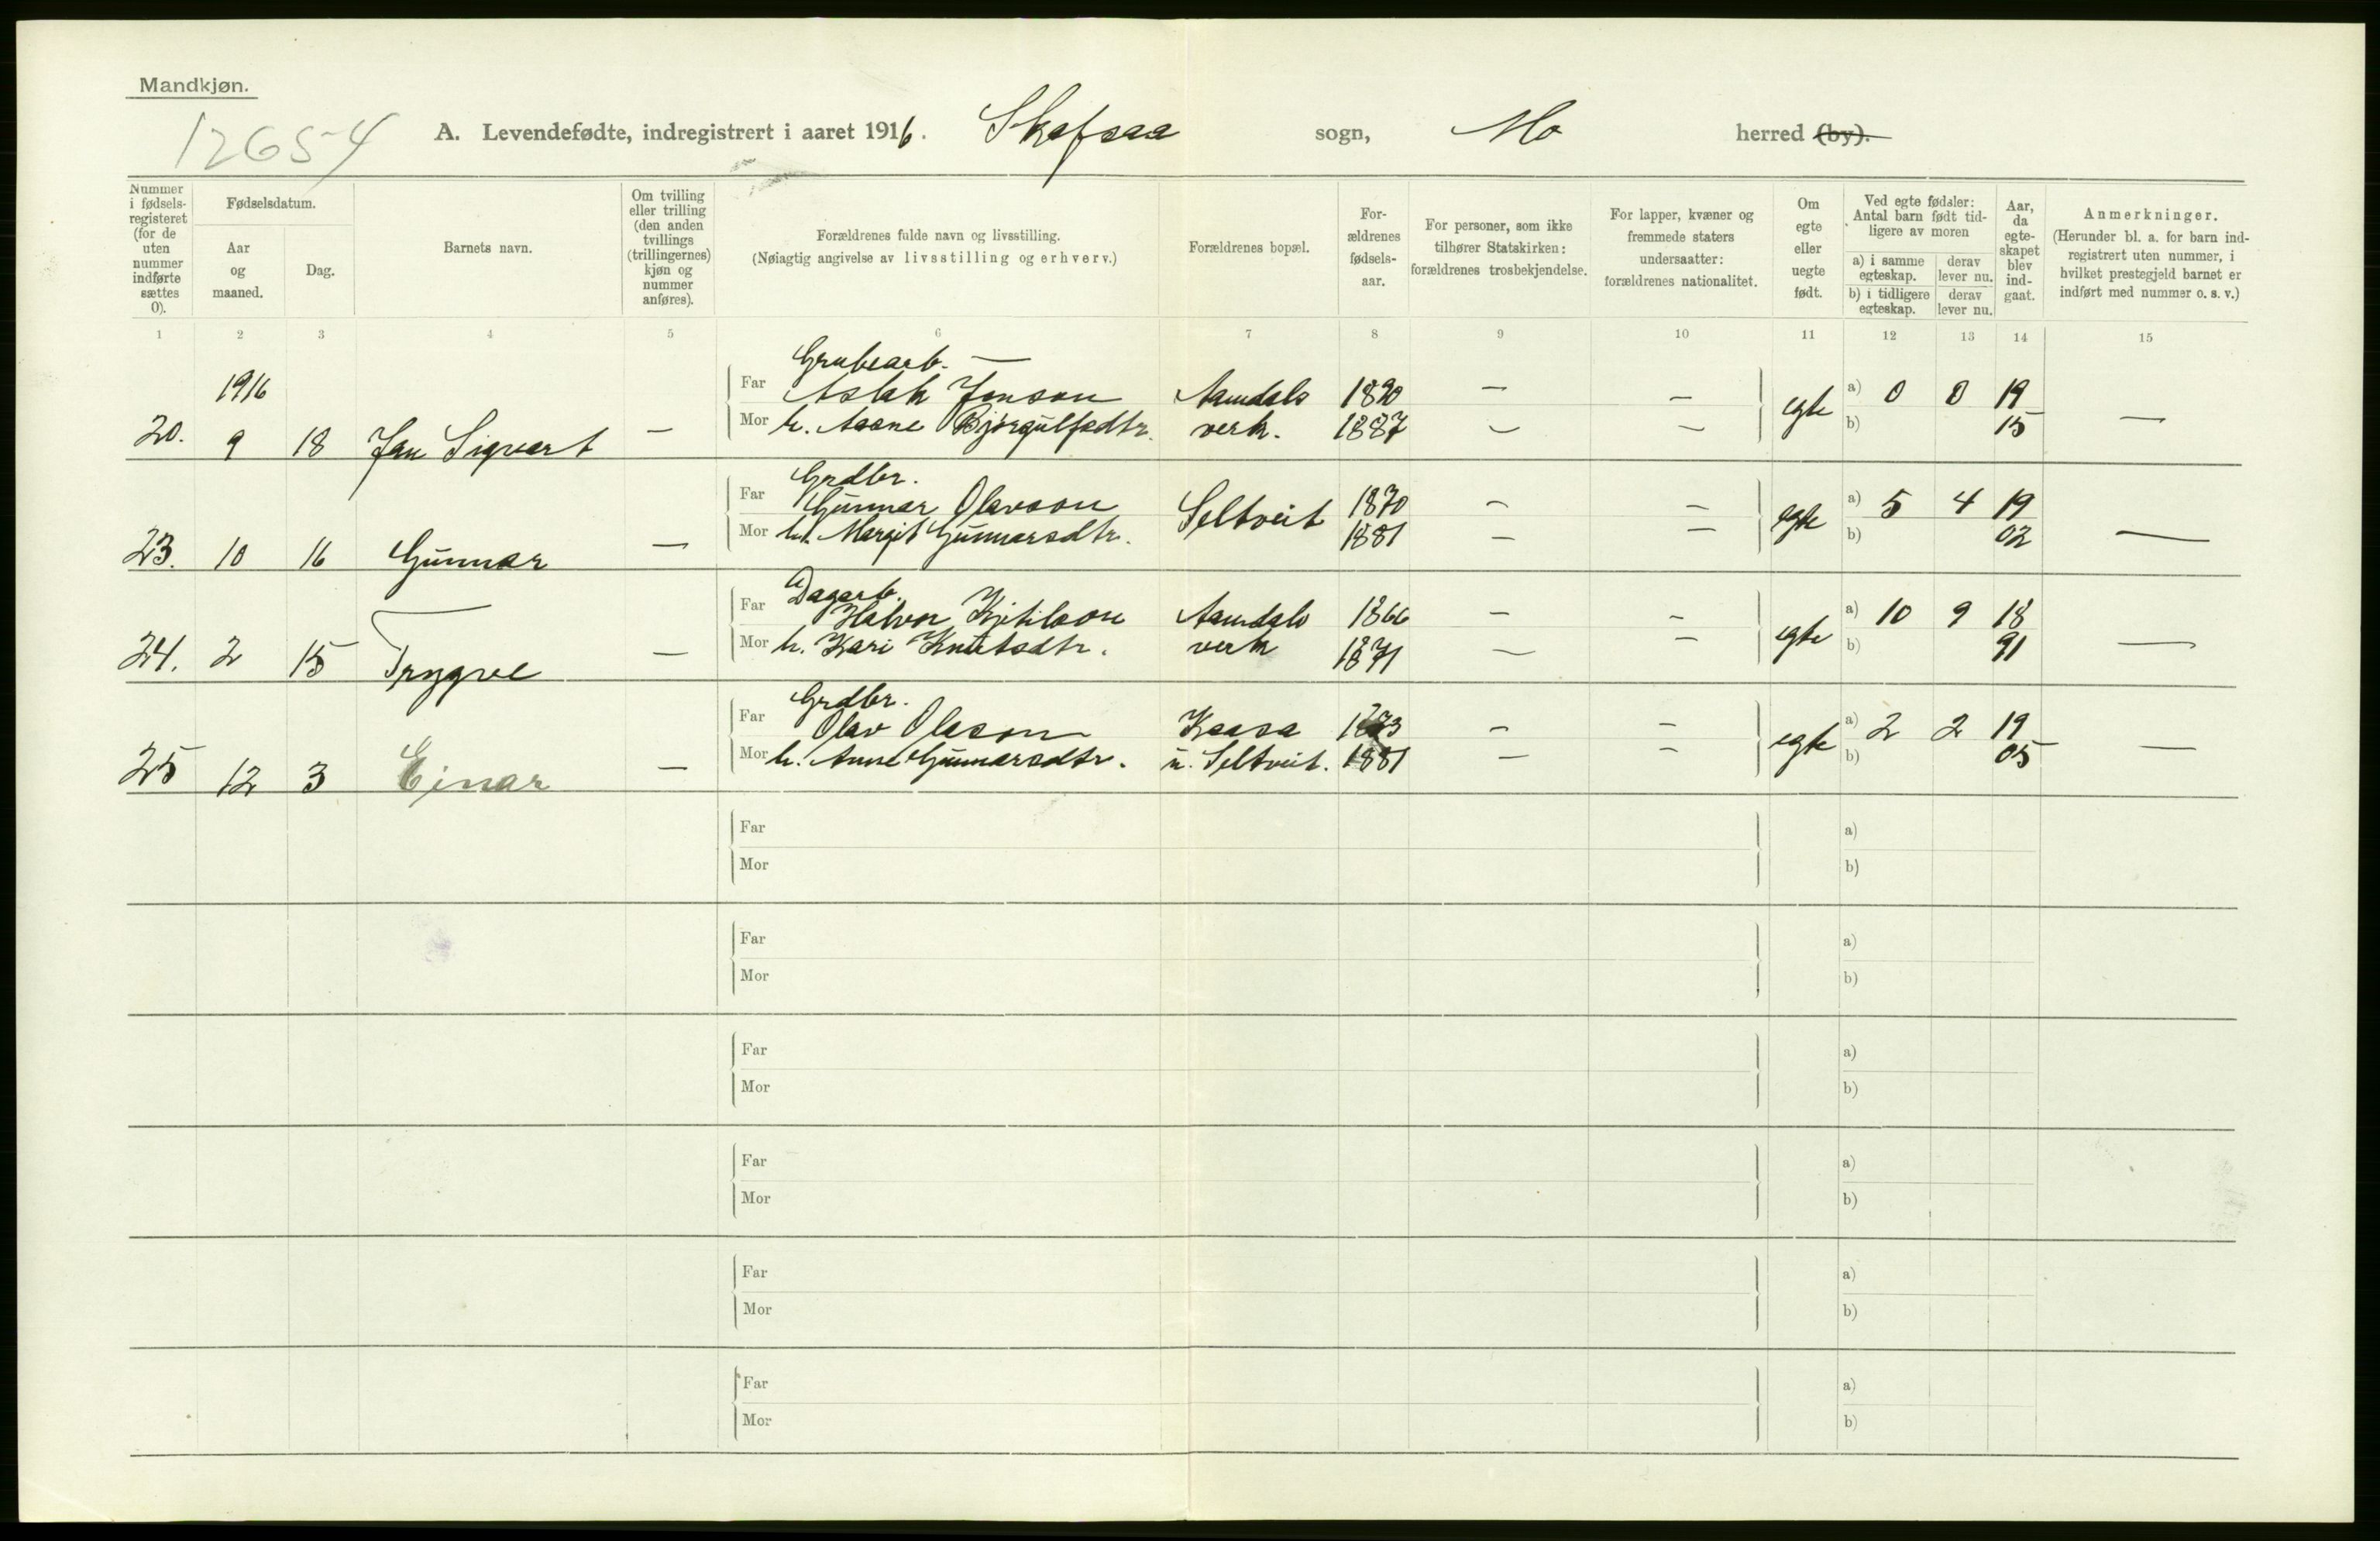 Mandkjøn.
12654
A. Levendefødte, indregistrert i aaret 1916. Skafsaa sogn, Mo herred (by).
Nummer i fødselsregisteret (for de uten nummer indførte sættes 0).
Fødselsdatum.
Aar og maaned.
Dag.
Barnets navn.
Om tvilling eller trilling (den anden tvillings (trillingernes) kjøn og nummer anføres).
Forældrenes fulde navn og livsstilling.
(Nøiagtig angivelse av livsstilling og erhverv.)
Forældrenes bopæl.
Forældrenes fødselsaar.
For personer, som ikke tilhører Statskirken: forældrenes trosbekjendelse.
For lapper, kvæner og fremmede staters undersaatter: forældrenes nationalitet.
Om egte eller uegte født.
Ved egte fødsler: Antal barn født tidligere av moren
a) i samme egteskap. derav lever nu.
b) i tidligere egteskap. derav lever nu.
Aar, da egteskapet blev indgaat.
Anmerkninger.
(Herunder bl. a. for barn indregistrert uten nummer, i hvilket prestegjeld barnet er indført med nummer o. s. v.)
1 2 3 4 5 6 7 8 9 10 11 12 13 14 15
1916
Grubearb. —
Far Aslak Jonson Aamdals 1890 — — a) 0 0 19
20. 9 18 Jan Sigvart — Mor h. Aasne Bjørgulfsdtr. verk. 1887 — — egte b) 15 —
Grdbr.
Far Gunnar Olavson Seltveit 1870 — — a) 5 4 19
23. 10 16 Gunnar — Mor h. Margit Gunnarsdtr. 1881 — — egte b) 02 —
Dagarb.
Far Halvor Kjetilson Aamdals 1866 — — a) 10 9 18
24. 2 15 Trygve — Mor h. Kari Knutsdtr. verk 1871 — — egte b) 91 —
Grdbr.
Far Olav Olason Kaasa 1873 — — a) 2 2 19
25 12 3 Einar — Mor h. Anne Gunnarsdtr. u. Seltveit. 1881 — — egte b) 05 —
Far a)
Mor b)
Far a)
Mor b)
Far a)
Mor b)
Far a)
Mor b)
Far a)
Mor b)
Far a)
Mor b)